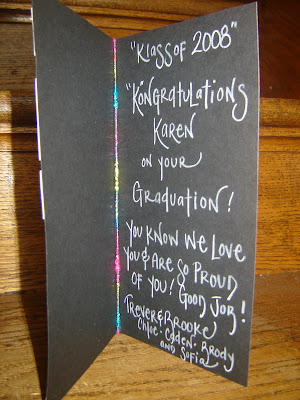 "Klass of 2008"
"Kongratulations
Karen
on your
Graduation!
You Know We Love
You & Are So Proud
of You! Good Job!
Trever & Brooke
Chloe - Ogden - Brody
and Sofia